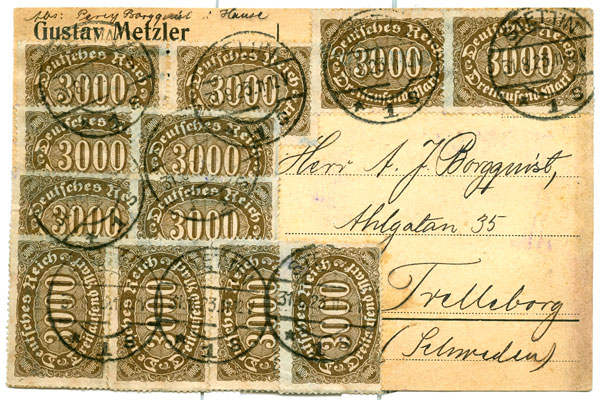 Abs: Percy Borgquist : Hause
Gustav Metzler
Deutsches Reich
3000
Dreitausend Mark
Deutsches Reich
3000
Dreitausend Mark
STETTIN
* 1 s
Deutsches Reich
3000
Deutsches Reich
3000
Dreitausend Mark
Deutsches Reich
3000
Deutsches Reich
3000
3000
3000
Herr A. J. Borgquist,
Ahlgatan 35
Trelleborg
(Schweden)
Deutsches Reich
3000
Dreitausend Mark
Deutsches Reich
3000
Dreitausend Mark
Deutsches Reich
3000
Dreitausend Mark
Deutsches Reich
3000
Dreitausend Mark
31.8.23
* 1